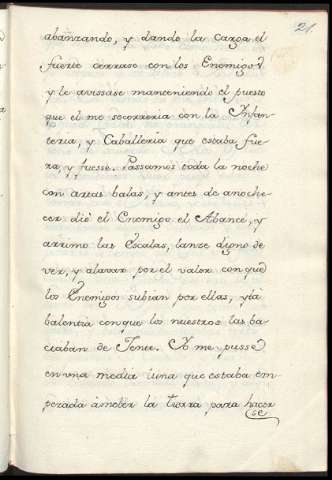 21
abanzando, y dando la carga el
fuerte cerrase con los Enemigos
y le avissase manteniendo el puesto
que el me socorreria con la Infan-
teria, y Caballeria que estaba fue-
ra, y fuesse. Passamos toda la noche
con artas balas, y antes de anoche-
cer dio el Enemigo el Abance, y
arrimo las Escalas, lanze digno de
ver, y alavar por el valor con que
los Enemigos subian por ellas, y la
balentia con que los nuestros las ba-
ciaban de Jente. A me pusse
en una media luna que estaba em-
pezada à meter la tierra para hacer
se